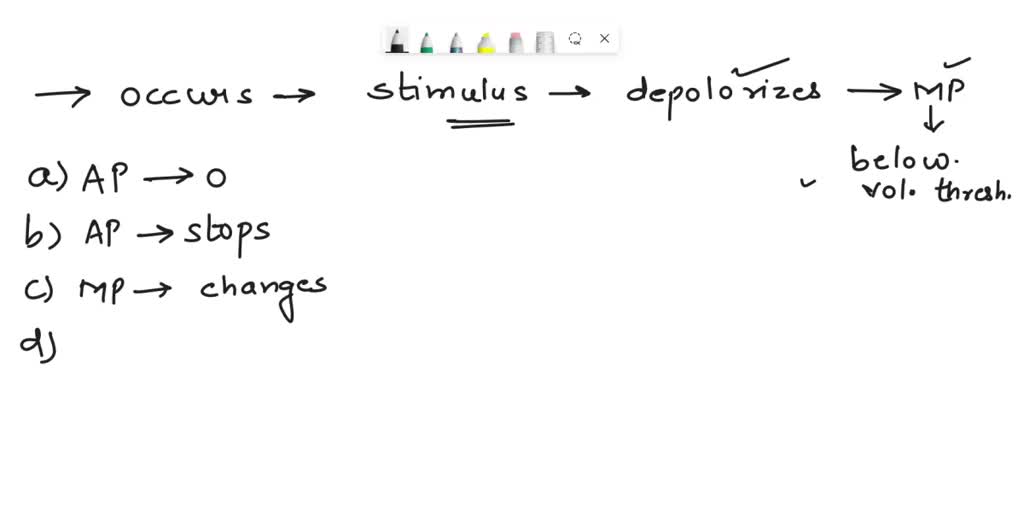 → occurs → stimulus → depolorizes → MP
↓
below.
vol. thresh.
a) AP → 0
b) AP → stops
c) MP → changes
d)